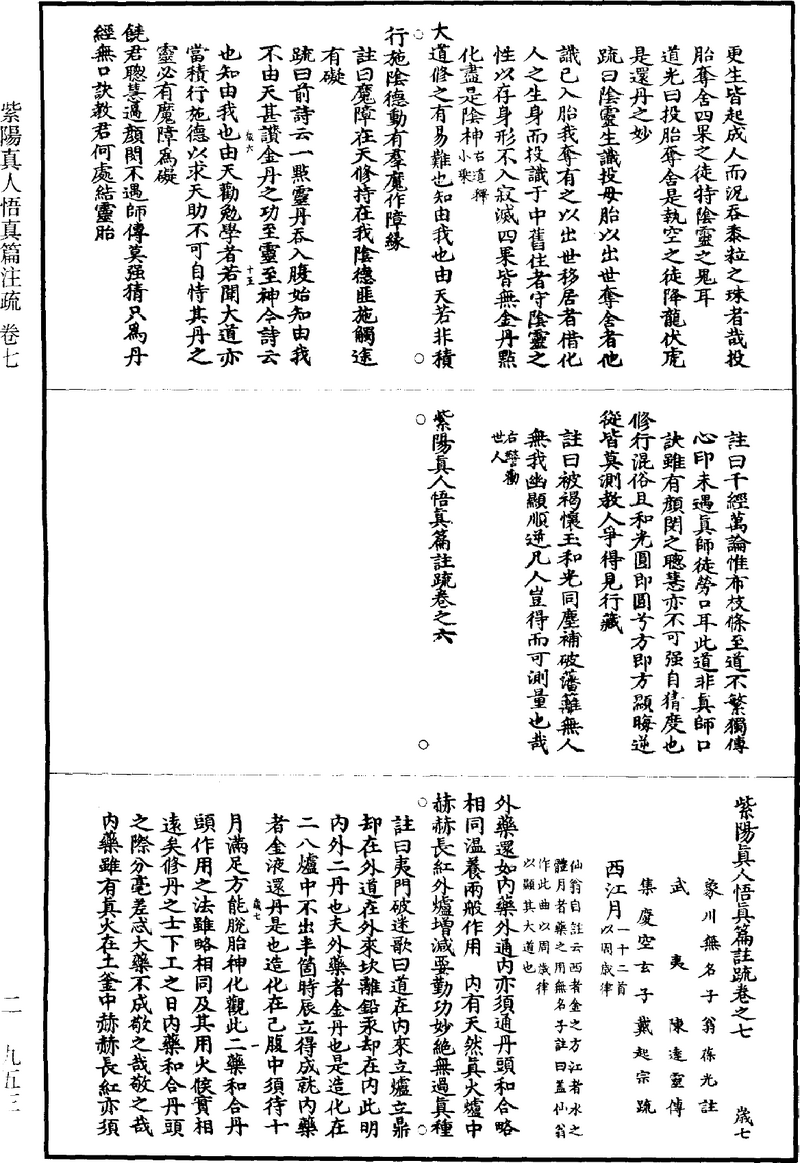 更生皆起成人而況吞黍粒之珠者哉投
胎奪舍四果之徒特陰靈之鬼耳
道光曰投胎奪舍是執空之徒降龍伏虎
是還丹之妙
疏曰陰靈生識投母胎以出世奪舍者他
識已入胎我奪有之以出世移居者借化
人之生身而投識于中舊住者守陰靈之
性以存身形不入寂滅四果皆無金丹點
化盡是陰神右道釋小乘
大道修之有易難也知由我也由天若非積
行施陰德動有羣魔作障緣
註曰魔障在天修持在我陰德匪施觸途
有礙
疏曰前詩云一點靈丹吞入腹始知由我
不由天甚讚金丹之功至靈至神今詩云
也知由我也由天勸勉學者若聞大道亦
當積行施德以求天助不可自恃其丹之
靈必有魔障為礙
饒君聰慧過顏閔不遇師傳莫强猜只為丹
經無口訣教君何處結靈胎
歲六 十五
註曰千經萬論惟布枝條至道不繁獨傳
心印未遇真師徒勞口耳此道非真師口
訣雖有顏閔之聰慧亦不可强自猜度也
修行混俗且和光圓即圓兮方即方顯晦逆
從皆莫測教人爭得見行藏
註曰被褐懷玉和光同塵補破藩蘺無人
無我幽顯順逆凡人豈得而可測量也哉
右警勸世人
紫陽真人悟真篇註疏卷之六
紫陽真人悟真篇註疏卷之七 歲七
象川無名子翁葆光註
武夷陳達靈傳
集慶空玄子戴起宗疏
西江月一十二首以周歲律
仙翁自註云西者金之方江者水之
體月者藥之用無名子註曰蓋仙翁
作此曲以周歲律
以顯其大道也
外藥還如內藥外通內亦須通丹頭和合略
相同溫養兩般作用　內有天然真火爐中
赫赫長紅外爐增減要勤功妙絕無過真種
註曰夷門破迷歌曰道在內來立爐立鼎
却在外道在外來坎離鉛汞却在內此明
內外二丹也夫外藥者金丹也是造化在
二八爐中不出半箇時辰立得成就內藥
者金液還丹是也造化在己腹中須待十
月滿足方能脫胎神化觀此二藥和合丹
頭作用之法雖略相同及其用火候實相
遠矣修丹之士下工之日內藥和合丹頭
之際分毫差忒大藥不成敬之哉敬之哉
內藥雖有真火在土釜中赫赫長紅亦須
歲七 一
紫陽真人悟真篇注疏 卷七
二—九五三